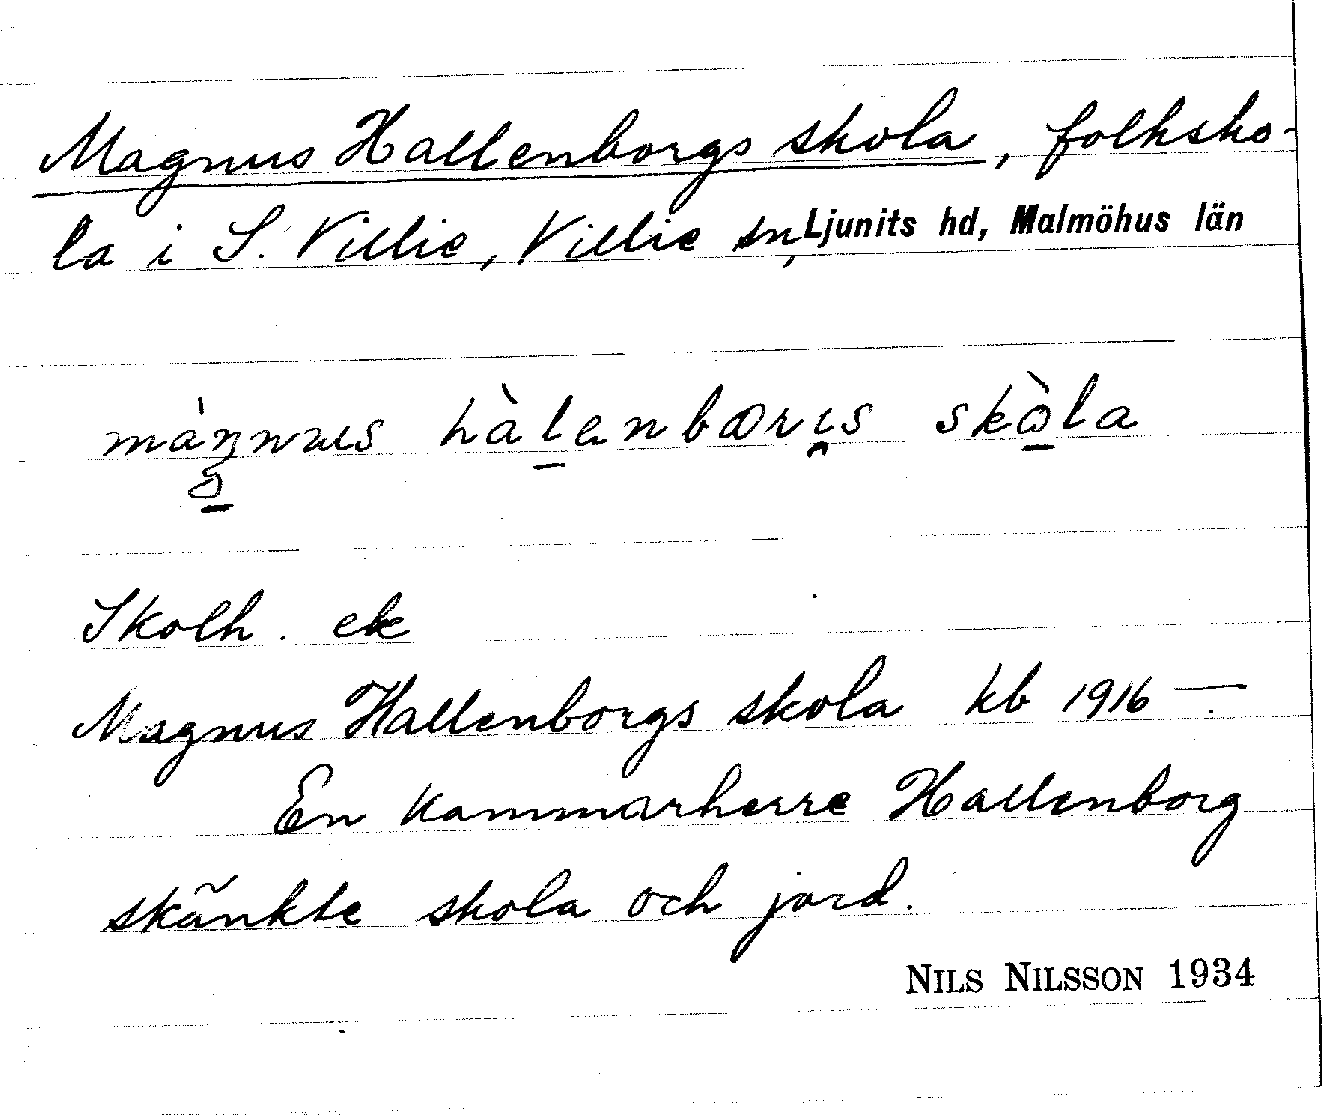 Magnus Hallenborgs skola, folksko-
la i S. Villie, Villie sn, Ljunits hd, Malmöhus län
skola
Skolh. ek
Magnus Hallenborgs skola kb 1916 —.
En kammarherre Hallenborg
skänkte skola och jord.
NILS NILSSON 1934